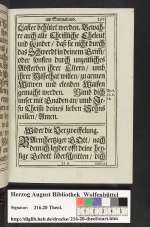 Laster behütet werden. Bewah-
re auch alle Christliche Eheleut
und Kinder / daß sie nicht durch
das Schwerdt in deinem Hauß/
oder sonsten durch unzeitliches
Absterben ihrer Eltern / und
ihrer Missethat willen / zu armen
Witwen und elenden Waisen
gemacht werden. und dich
unser mit Gnaden an / umb Je-
su Christi deines lieben Sohns
willen / Amen.
Wider die Verzweiffelung.
Barmhertziger Gott / nach
dem ich leyder offt deine hey-
lige Gebott übertretten / dich
Herzog August Bibliothek Wolfenbüttel
Signatur: 216.20 Theol.
http://diglib.hab.de/drucke/216-20-theol/start.htm